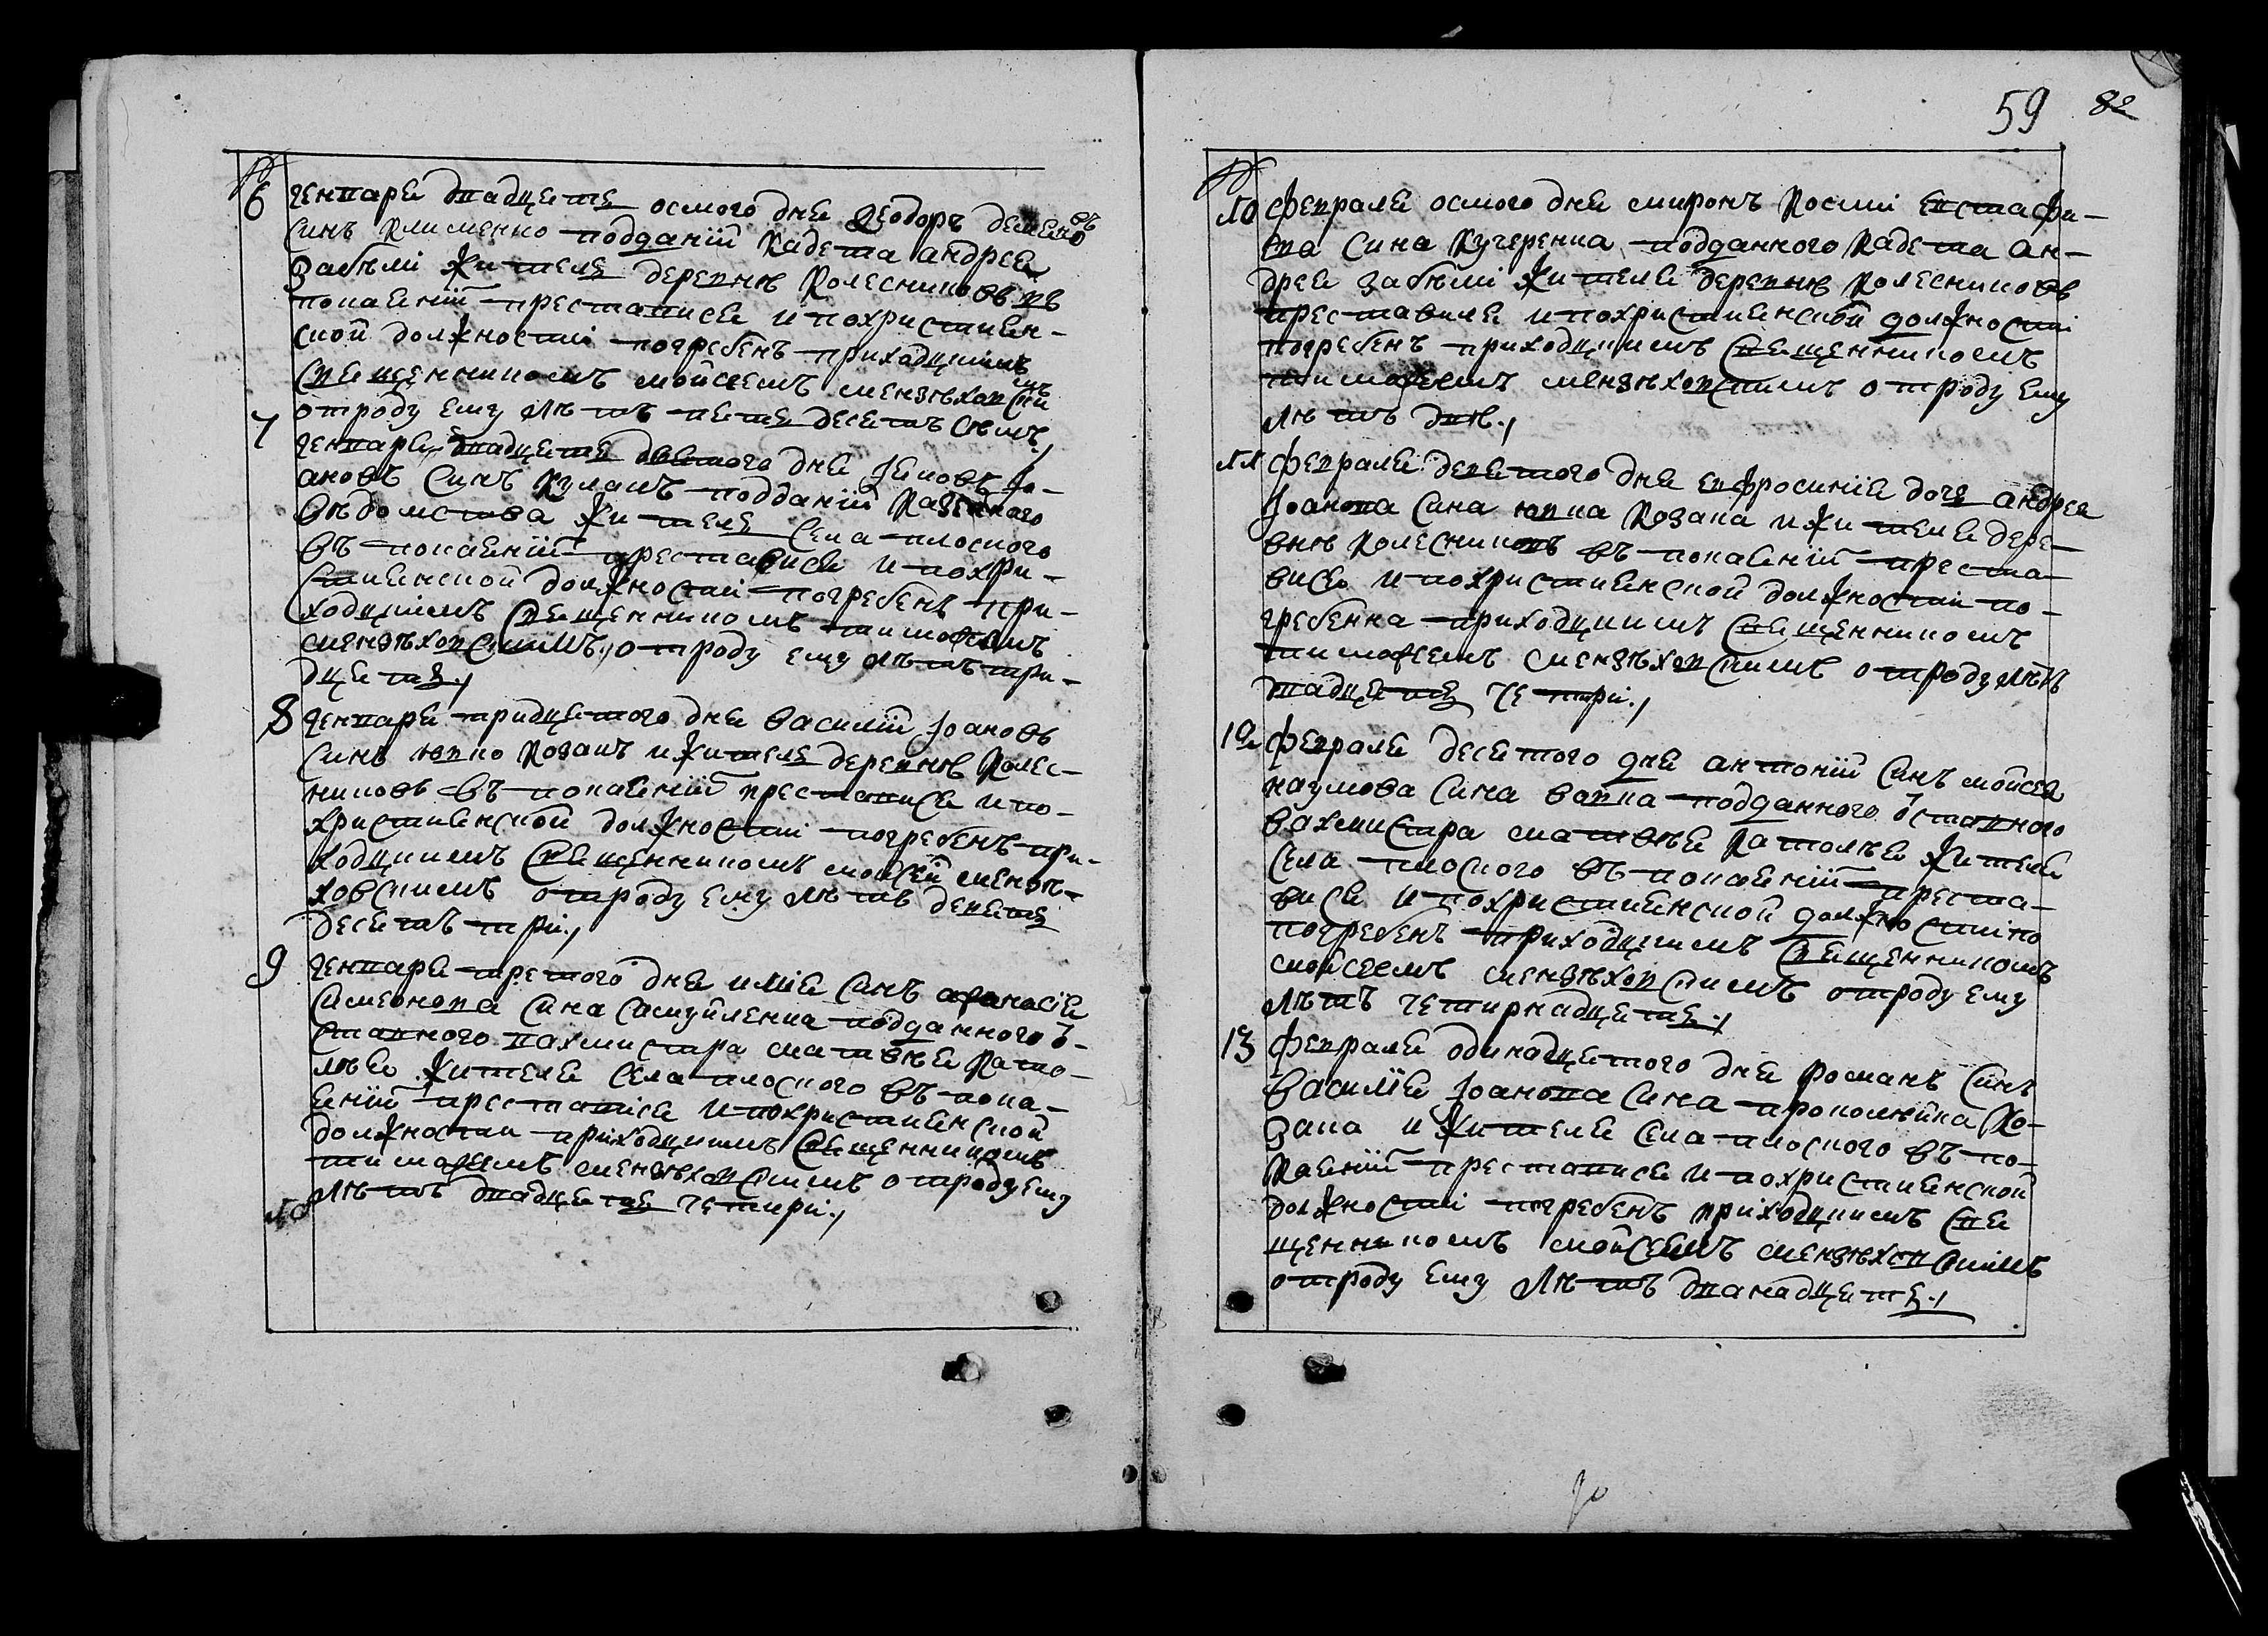 №
6 генваря двадцать осмого дня Ѳеодоръ Демяновъ
синъ Клименко подданій кадета андрея
Забѣли жителя деревнѣ Колесниковъ въ
покаяніи преставися и по христиан-
ской должности погребенъ приходцкимъ
священникомъ мойсеемъ мензѣховскимъ
отроду ему лѣтъ пятдесятъ сѣмъ./
7 генваря двадцать девятого дня Іяковъ Іо-
ановъ синъ Кулакъ подданій Казенного
вѣдомства жителя села плоского
въ покаяніи преставися и по хри-
стиянской должности погребенъ при-
ходцкимъ священникомъ тимофеемъ
мензѣховскимъ, отроду ему лѣтъ трі-
дцять./
8 генваря тридцятого дня василій Іоановъ
синъ ювко козакъ и жителя деревнѣ Колес-
никовъ въ покаяніи преставися и по-
християнской должности погребенъ при-
ходцкимъ священникомъ мойсей мензѣ-
ховскимъ отроду ему лѣтъ девять
десятъ три./
9 генваря третого дня илія синъ афанасія
симеонова сина самуйленка подданного ѿ-
ставного вахмистра матвѣя Като-
лѣя жителя села плоского въ пока-
яніи преставися и по християнской
должности приходцкимъ священникомъ
тимофеемъ мензѣховскимъ отроду ему
лѣтъ двадцать четири./
10
59 82
№
10 февраля осмого дня миронъ Космі евстафи-
ева сина Кучеренка подданного Кадета ан-
дрея Забѣлі жителя деревнѣ Колесниковъ
преставися и по християнской должності
погребенъ приходцкимъ священникомъ
тимофеемъ мензѣховскимъ отроду ему
лѣтъ двѣ./
11 февраля девятого дня евфросинія дочь андрея
Іоанова сина ювка Козака и жителя дере-
внѣ Колесниковъ въ покаяніи преста-
вися и по християнской должности по-
гребенна приходцкимъ священникомъ
тимофеемъ мензѣховскимъ отроду лѣтъ
двадцать четирі./
12 февраля десятого дня антоній синъ мойсея
наумова сина вовка подданного ѿставного
вахмистра матвѣя Католѣя жителя
села плоского въ покаяніи преста-
вися и по християнской должності по
погребенъ приходцкимъ священникомъ
мойсеемъ мензѣховскимъ отроду ему
лѣтъ четирнадцать./
13 февраля одинадцятого дня романъ синъ
василія Іоанова сина прокопѣйка Ко-
зака и жителя села плоского въ по-
каяніи преставися и по християнской
должності погребенъ пріходцкимъ свя
щенникомъ мойсеемъ мензѣховскимъ
отроду ему лѣтъ дванадцать./